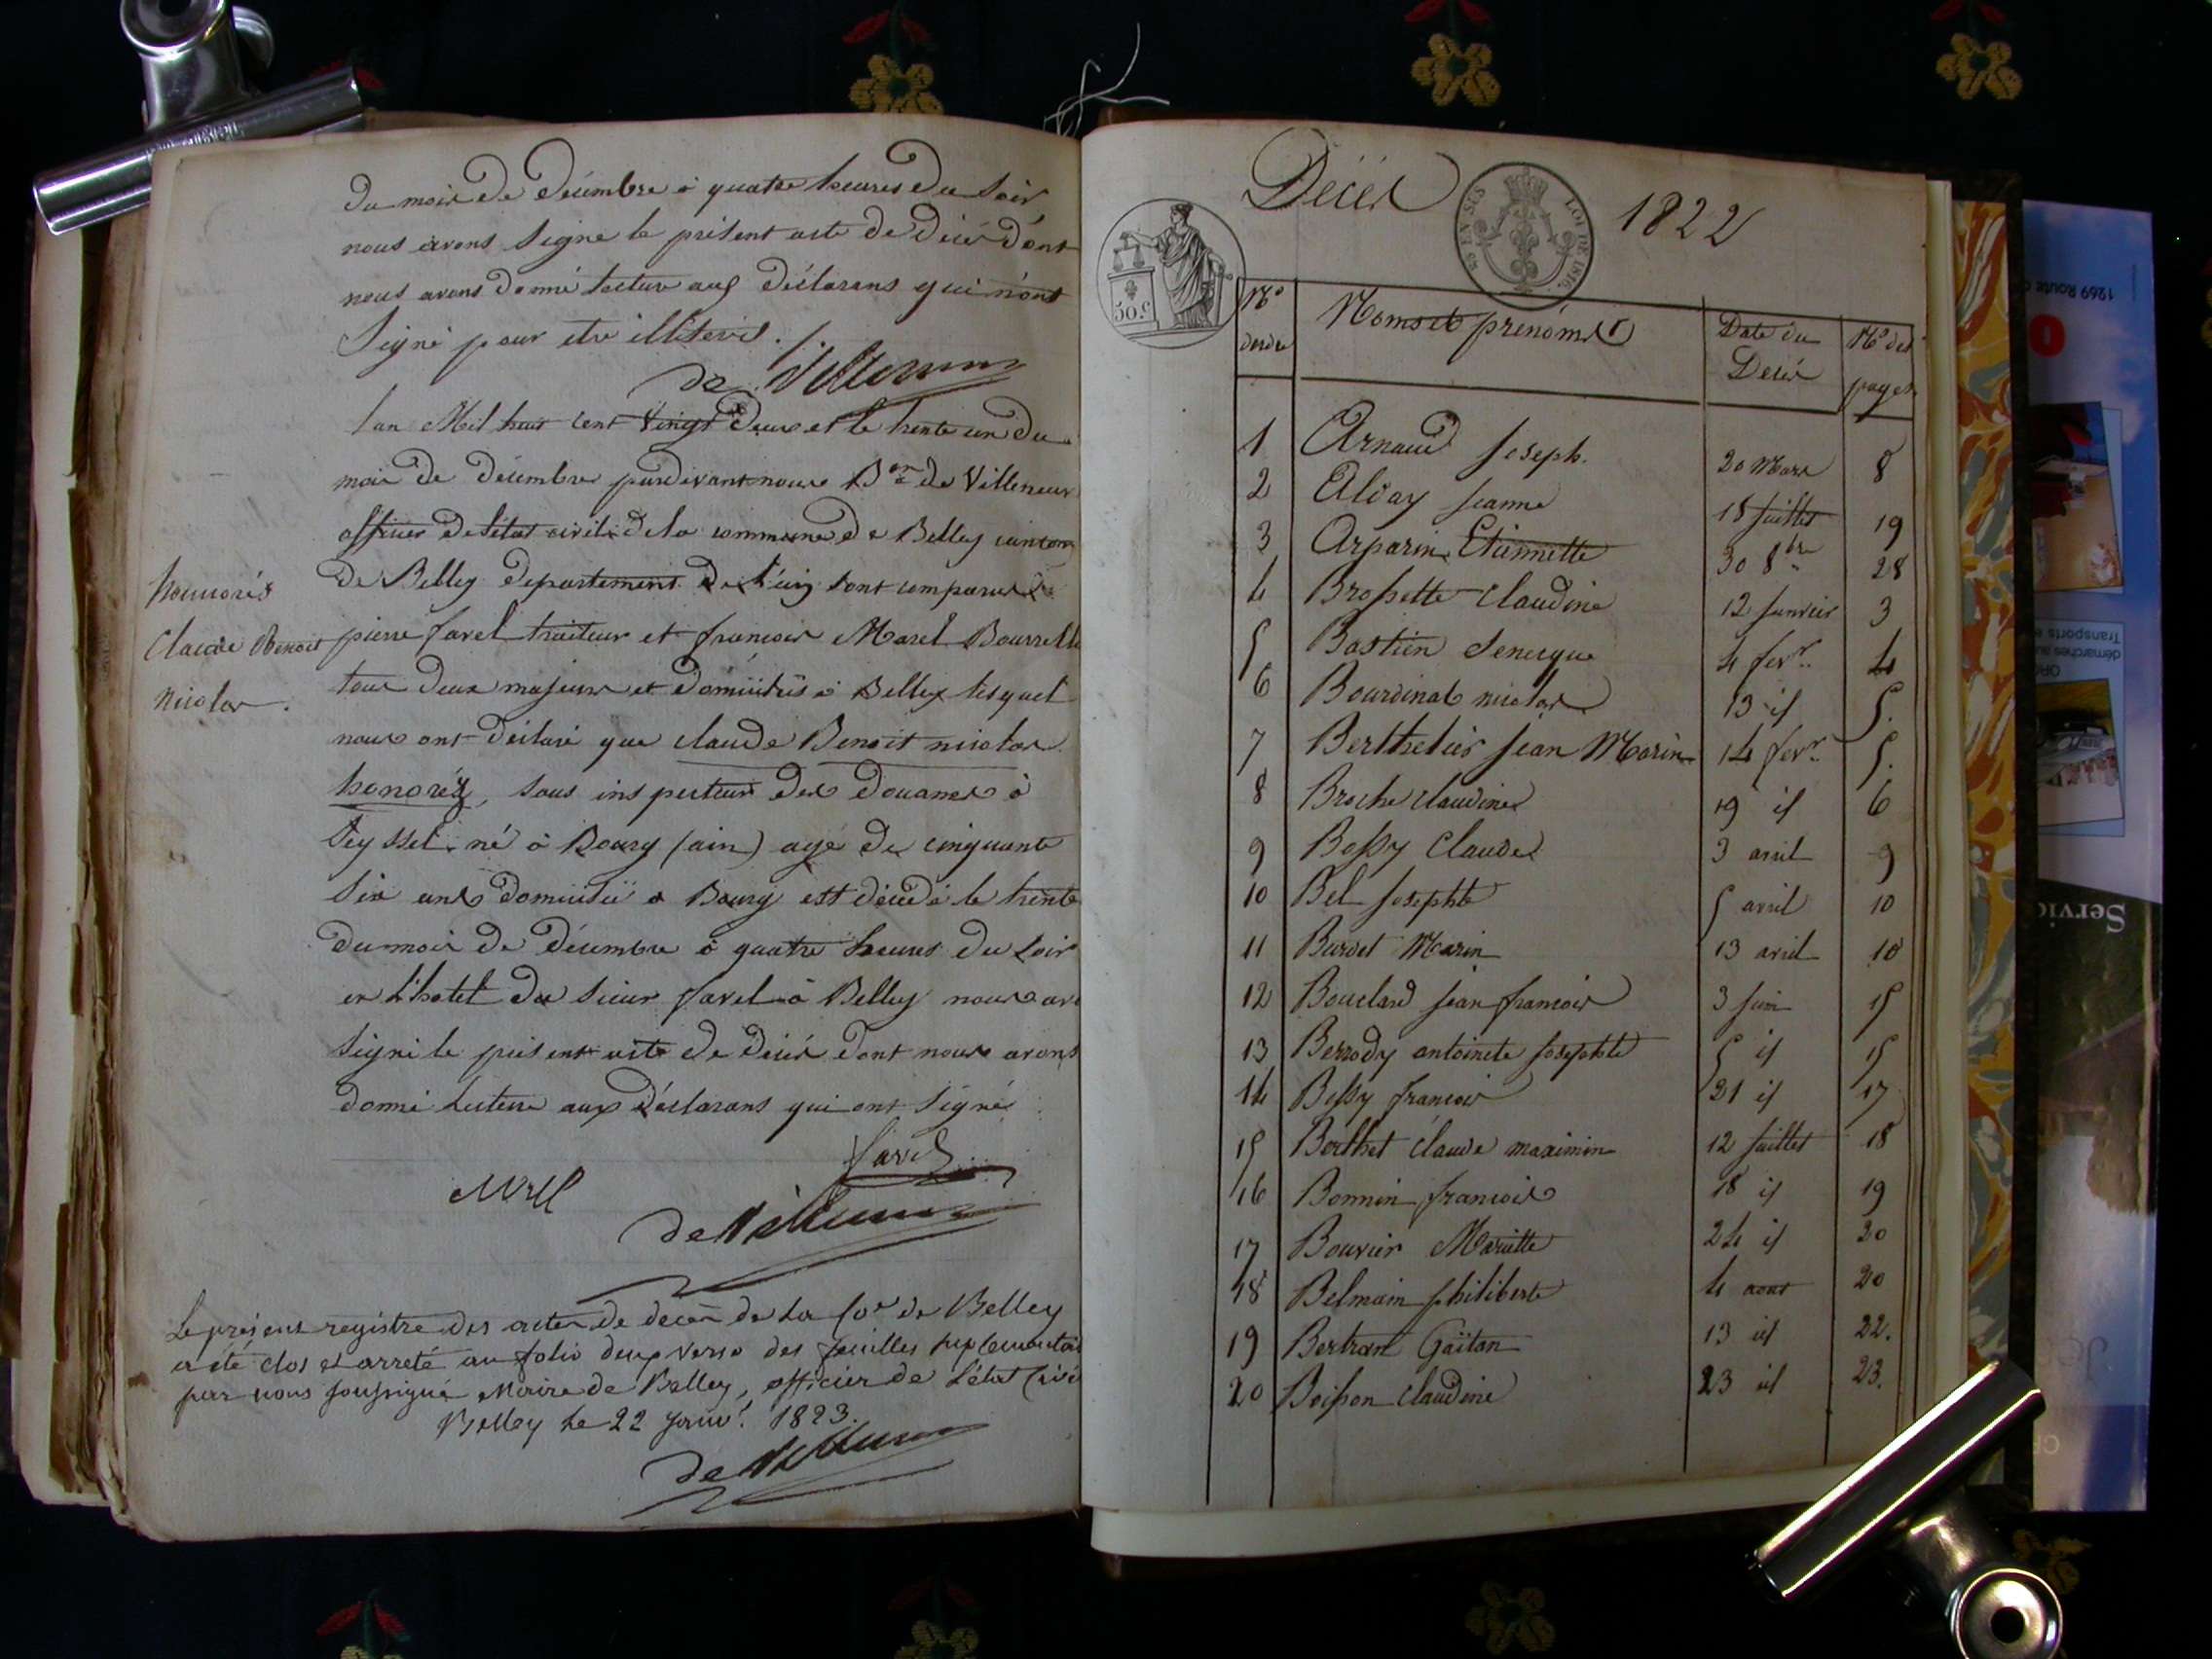 du mois de décembre à quatre heures du soir
nous avons signé le présent acte de décès dont
nous avons donné lecture aux déclarans qui n'ont
signé pour etre illiterés ./.
de Villeneuve
Lan Mil huit cent vingt deux et le trente un du
mois de décembre pardevant nous Bon de Villeneuve
officier de létat civil de la commune de Belley canton
de Belley departement de l'ain sont comparus
honnorés
Claude Benoit
nicolas.
pierre favel traiteur et francois Morel Bourrelle
tous deux majeurs et domiciliés à Belley lesquels
nous ont déclaré que claude Benoit nicolas
honoréz, sous inspecteur des douanes à
Seyssel né à Bourg (ain) agé de cinquante
six ans domicilié à Bourg est décédé le trente
du mois de décembre à quatre heures du soir
en L'hotel du sieur favel à Belley nous av
signé le présent acte de décès dont nous avons
donné lecture aux déclarans qui ont signé
favel
Morel
de Villeneuve
Le présent registre des actes de décès de la Co.e de Belley
a été clos et arreté au folio deux verso des feuilles suplementai
par nous soussigné Maire de Belley, officier de L'état Civi
Belley le 22 Janv.r 1823.
de Villeneuve
Décès 1822
50 EN SUS LOI DE 1816.
50.c
No dordre Noms et prénoms Date du Décès No des pages
1 Arnaud Joseph. 20 Mars 8
2 Alday Jeanne 18 Juillet 19
3 Arparin Etiennette 30 8bre 28
4 Brossette claudine 12 Janvier 3
5 Bastien Senecque 4 fevr.. 4
6 Bourdinat nicolas 13 id 5.
7 Berthelier Jean Marin 14 fevr.. 5.
8 Broche claudine 19 id 6
9 Bossy Claude 3 avril 9
10 Bel Josephte 5 avril 10
11 Burdet Marin 13 avril 10
12 Bouclard Jean francois 3 Juin 15
13 Berrody antoinete Josephte 5 id 15
14 Bessy francois 21 id 17
15 Berthet claude maximin 12 Juillet 18
16 Bonnin francois 18 id 19
17 Bouvier Mariette 24 id 20
18 Belmain philiberte 4 aout 20
19 Bertran Gaïtan 13 id 22.
20 Boisson claudine 23 id 23.
1269 Route
Transports
démarches au
Servic